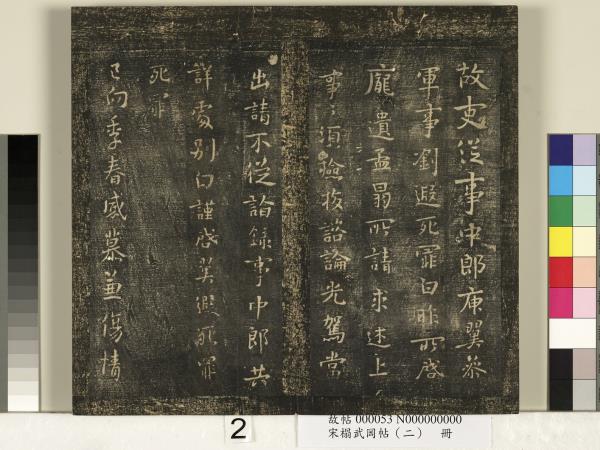 故吏從事中郎庾翼參
軍事劉遐死罪白昨所啓
龐遺孟昺所請求述上
事々須撿挍諮論光駕當
出請不從詣録事中郎共
詳處別白謹啓翼遐死罪
死罪
已向季春感慕兼傷情
2
故帖 000053 N000000000
宋榻武岡帖(二) 冊